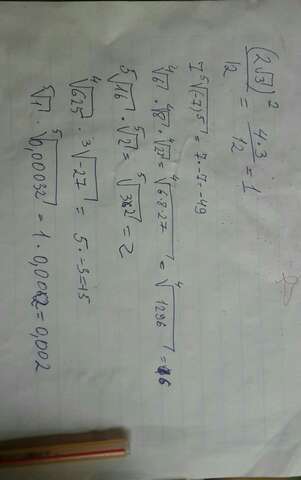 (2√3)²/12 = 4·3/12 = 1
7⁵√(-7)⁵ = 7·-7=-49
⁴√6 · ⁴√8 · ⁴√27 = ⁴√6·8·27 = ⁴√1296 = 6
⁵√16 · ⁵√2 = ⁵√32 = 2
⁴√625 · ³√-27 = 5·-3=-15
⁵√1 · ⁵√0,00032 = 1·0,002=0,002